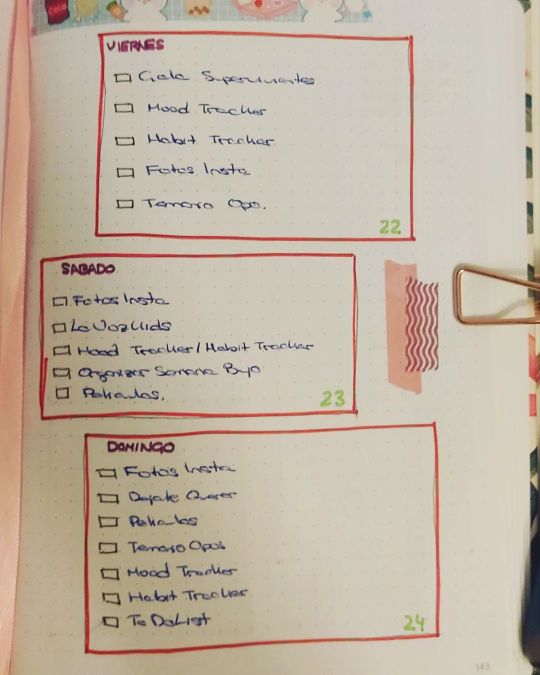 Cola
VIERNES
Gala Supervivientes
Mood Tracker
Habit Tracker
Fotos Insta
Temario Opo.
22
SABADO
Fotos Insta
La Voz Kids
Mood Tracker/Habit Tracker
Organizar Semana Bujo
Peliculas.
23
DOMINGO
Fotos Insta
Dejate Querer
Peliculas
Temario Opos
Mood Tracker
Habit Tracker
To Do List
24
143